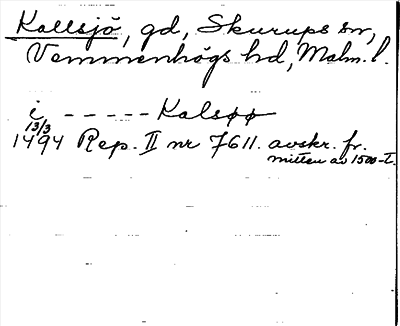 Kallsjö, gd, Skurups sn,
Vemmenhögs hd, Malm. l.
i ----- Kalsøø
13/3
1494 Rep. II nr 7611. avskr. fr.
mitten av 1500-t.